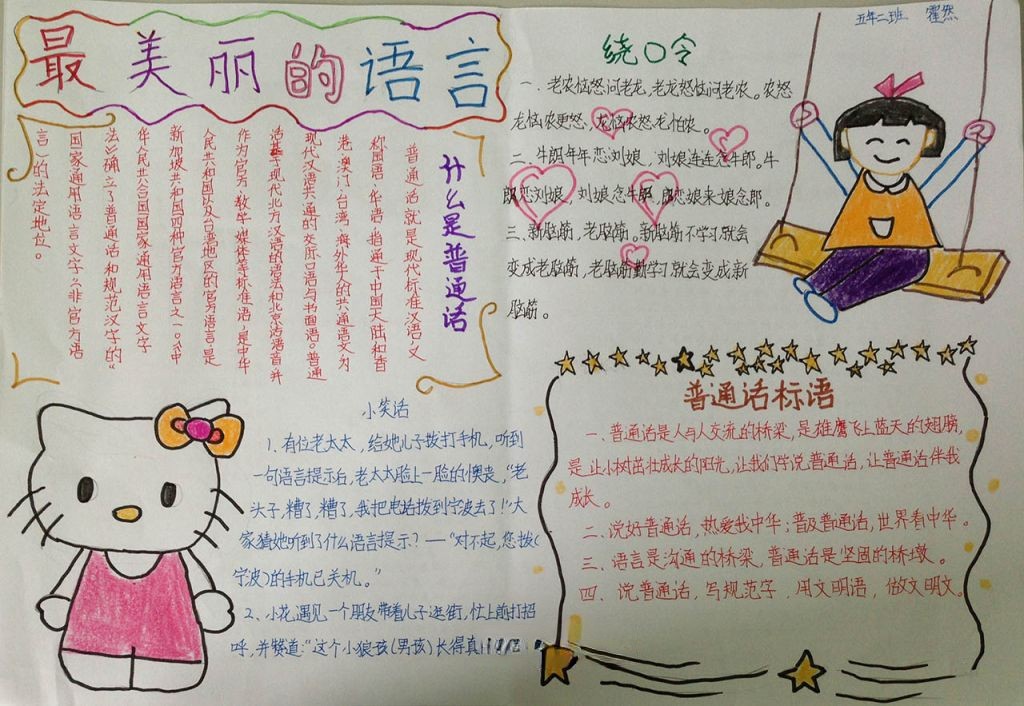 五年二班 霍然
最美丽的语言
什么是普通话
普通话就是现代标准汉语,又
称国语、华语,指通于中国大陆和香
港、澳门、台湾、海外华人的共通语文,为
现代汉语共通的交际口语与书面语。普通
话基于现代北方汉语的语法和北京话语音,并
作为官方、教学、媒体等标准语,是中华
人民共和国以及台湾地区的官方语言;是
新加坡共和国四种官方语言之一。《中
华人民共和国国家通用语言文字
法》确立了普通话和规范汉字的“
国家通用语言文字”(非官方语
言)的法定地位。
绕口令
一、老农恼怒问老龙,老龙怒恼问老农。农怒
龙恼农更怒,龙恼农怒龙怕农。
二、牛郎年年恋刘娘,刘娘连连念牛郎。牛
郎恋刘娘,刘娘念牛郎,郎恋娘来娘念郎。
三、新脑筋,老脑筋,新脑筋不学习就会
变成老脑筋,老脑筋勤学习就会变成新
脑筋。
小笑话
1、有位老太太,给她儿子拨打手机,听到
一句语言提示后,老太太脸上一脸的懊丧,“老
头子,糟了,糟了,我把电话拨到宁波去了!”大
家猜她听到了什么语言提示?—“对不起,您拨(
宁波)的手机已关机。”
2、小花遇见一个朋友带着儿子逛街,忙上前打招
呼,并赞道:“这个小狼孩(男孩)长得真
普通话标语
一、普通话是人与人交流的桥梁,是雄鹰飞上蓝天的翅膀,
是让小树茁壮成长的阳光,让我们学说普通话,让普通话伴我
成长。
二、说好普通话,热爱我中华;普及普通话,世界看中华。
三、语言是沟通的桥梁,普通话是坚固的桥墩。
四、说普通话,写规范字,用文明语,做文明文。